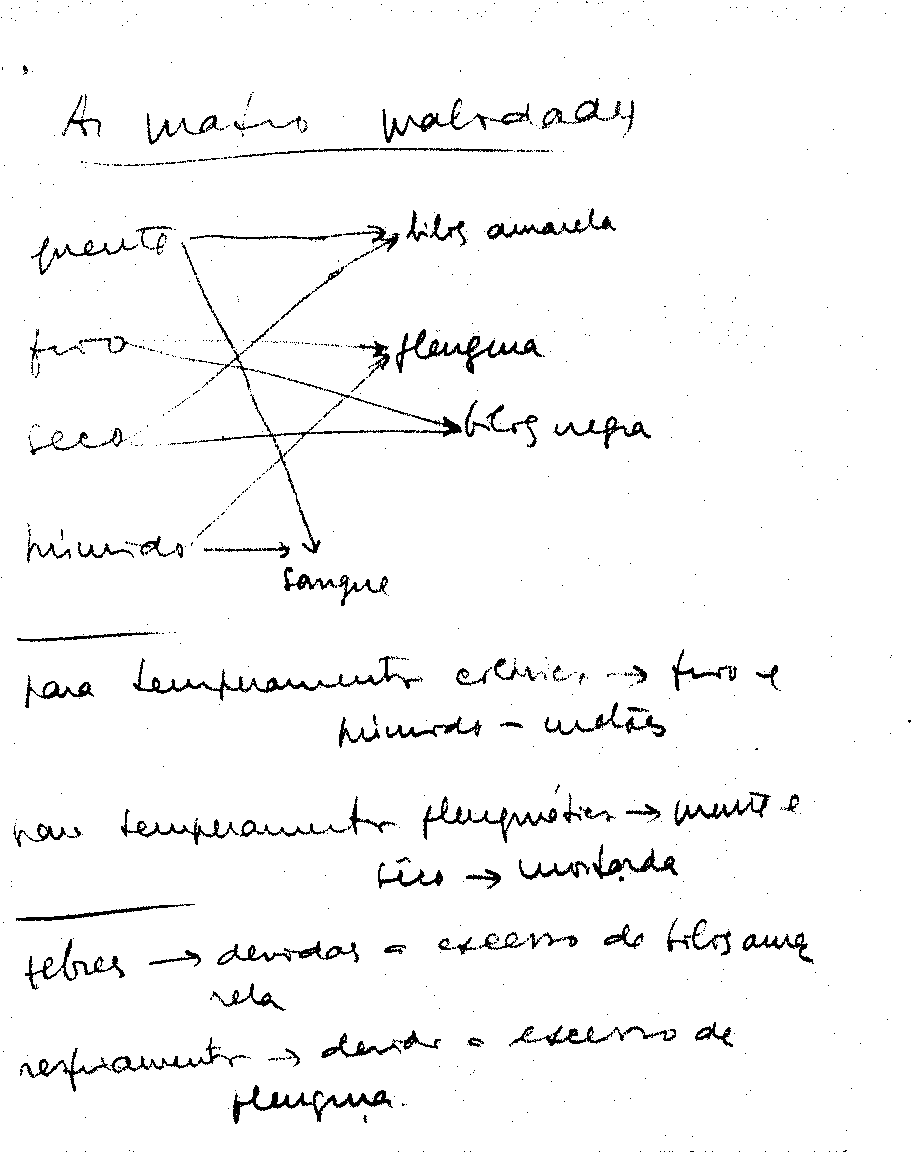 As quatro qualidades
quente
bilis amarela
frio
fleugma
seco
bilis negra
húmido
sangue
para temperamento colérico → frio e
húmido – melões
para temperamento fleugmático → quente e
sêco → mostarda
febres → devidas a excesso de bilis ama
rela
resfriamento → devido a excesso de
fleugma.